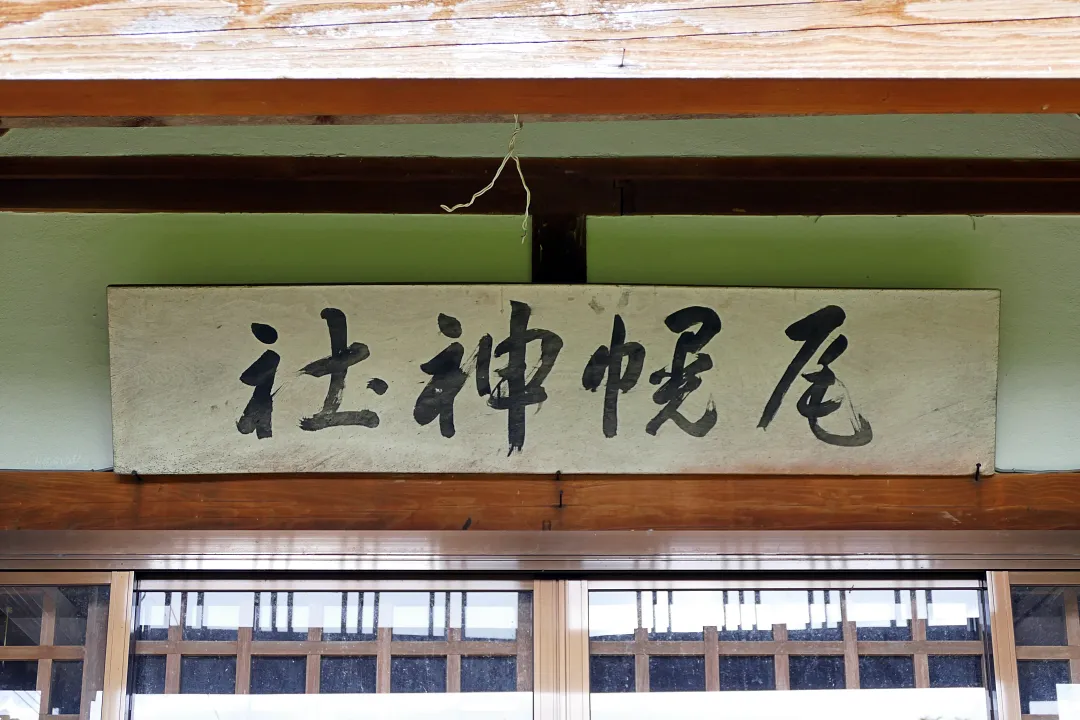 尾幌神社